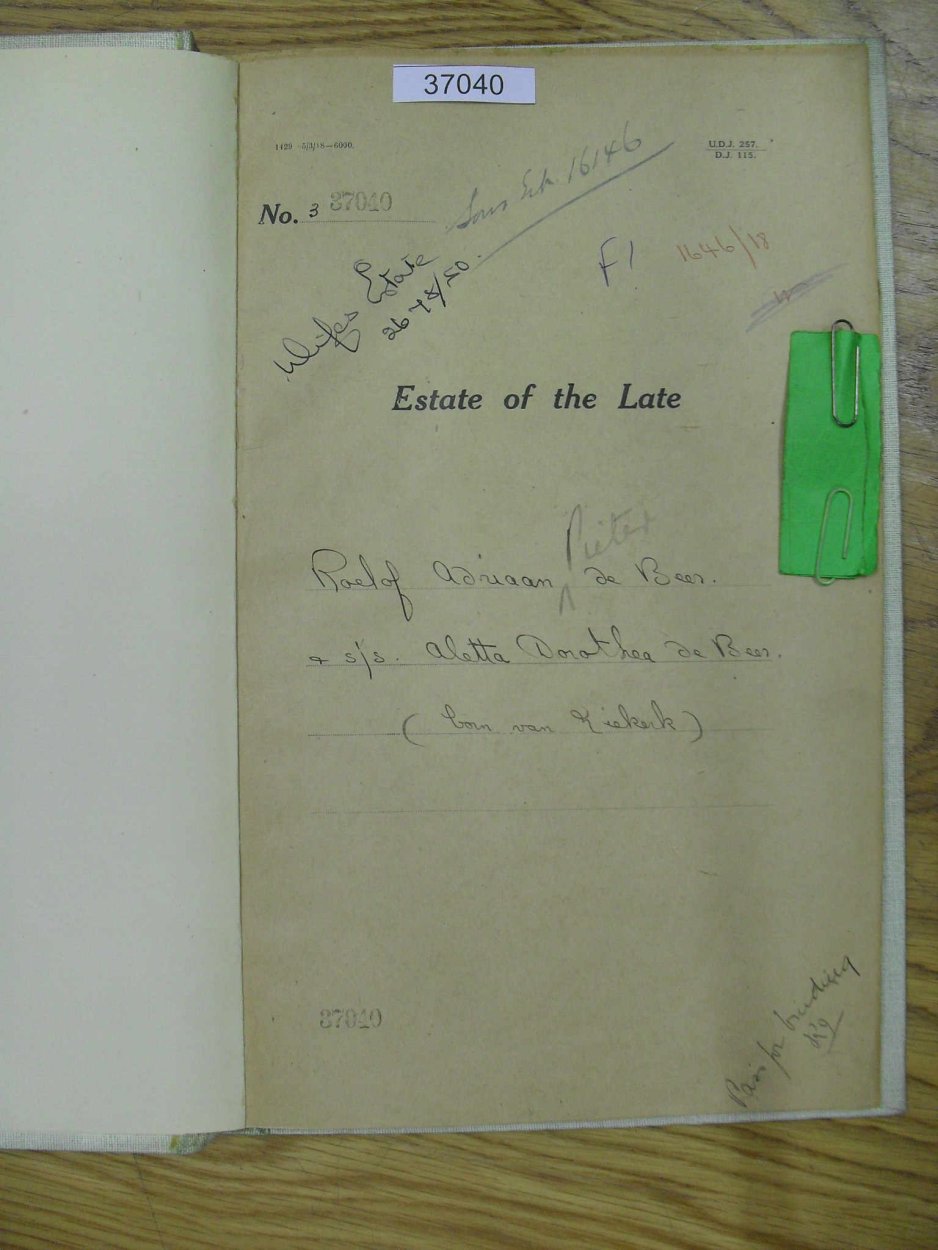 37040
1429—5/3/18—6000.
U.D.J. 257.
D.J. 115.
No. 3 37040
Sons Est. 16146
Wifes Estate
2678/50
F1
1646/18
Estate of the Late
Pieter
Roelof Adriaan ^ de Beer.
& s/s. Aletta Dorothea de Beer.
(born van Niekerk)
37040
Pass for binding